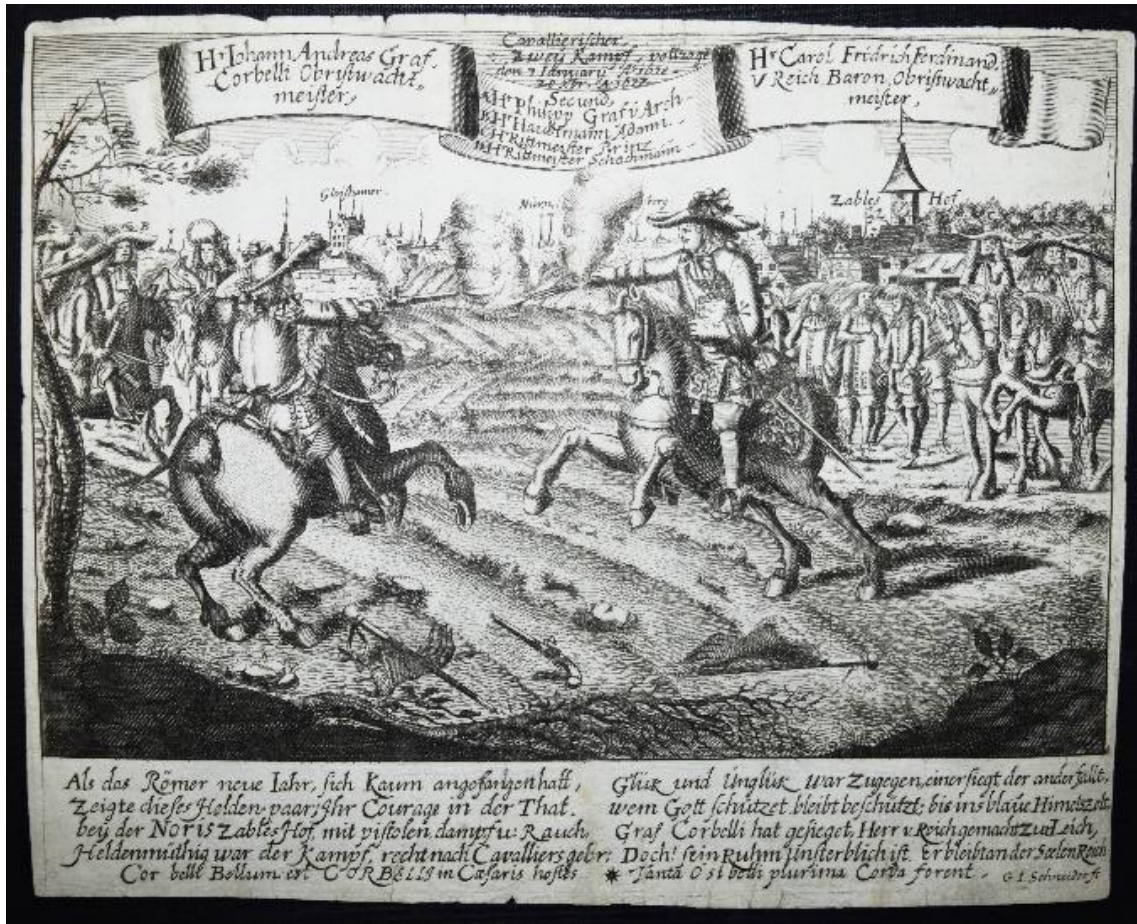 Hr Iohann Andreas Graf.
Corbelli Obristwacht„
meister,
Cavallierischer
Zweÿ Kampf, vollzogē
den 1 Ianuary
Secund,
Hr Philipp Graf v Arch
Hr Haubtmann Adam
Hr Rittmeister Prinz
Hr Rittmeister Schachmann
Hr Carol Fridrich Ferdinand,
V Reich Baron, Obristwacht„
meister,
Gleishamer
Nürn berg
Zables Hof
B
Als das Römer neue Iahr, sich Kaum angefangen hatt,
Zeigte dieses Helden-paar, Ihr Courage in der That.
beÿ der NORIS Zables Hof, mit pistolen, dampf u: Rauch,
Heldenmüthig war der Kampf, recht nach Cavalliers gebr:
Cor belli Bellum est CORBELLI in Cæsaris hostes
Glük und Unglük war Zugegen, einer siegt der ander fällt,
wem Gott schützet, bleibt beschützt, bis ins blaue Himels Zelt,
Graf Corbelli hat gesieget, Herr v. Reich gemacht Zur Leich,
Doch! sein Ruhm Unsterblich ist. Er bleibt an der Seelen Reich
* Tanta O si belli plurima Corda forent.
G. I. Schneider f: